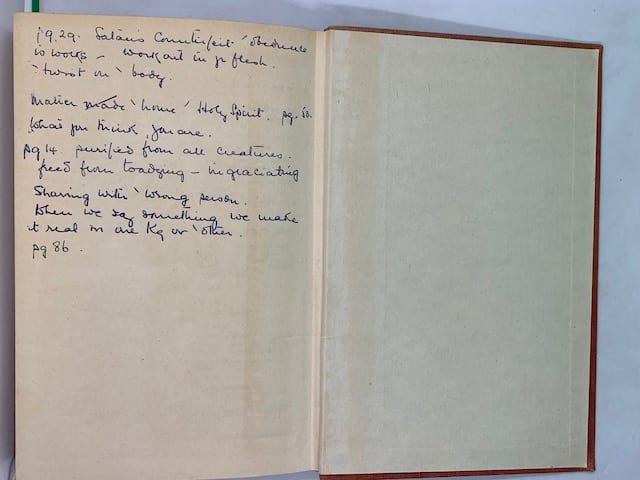 pg. 29. Satan's Counterfeit 'obedience
to works - work out in yr flesh.
'twist on' body.
Matter made 'home' Holy Spirit. pg. 50.
What you think you are.
pg 14. purified from all creatures.
freed from toadying - ingraciating
Sharing with 'wrong person.
When we say something we make
it real in one Kg or 'other.
pg 86.